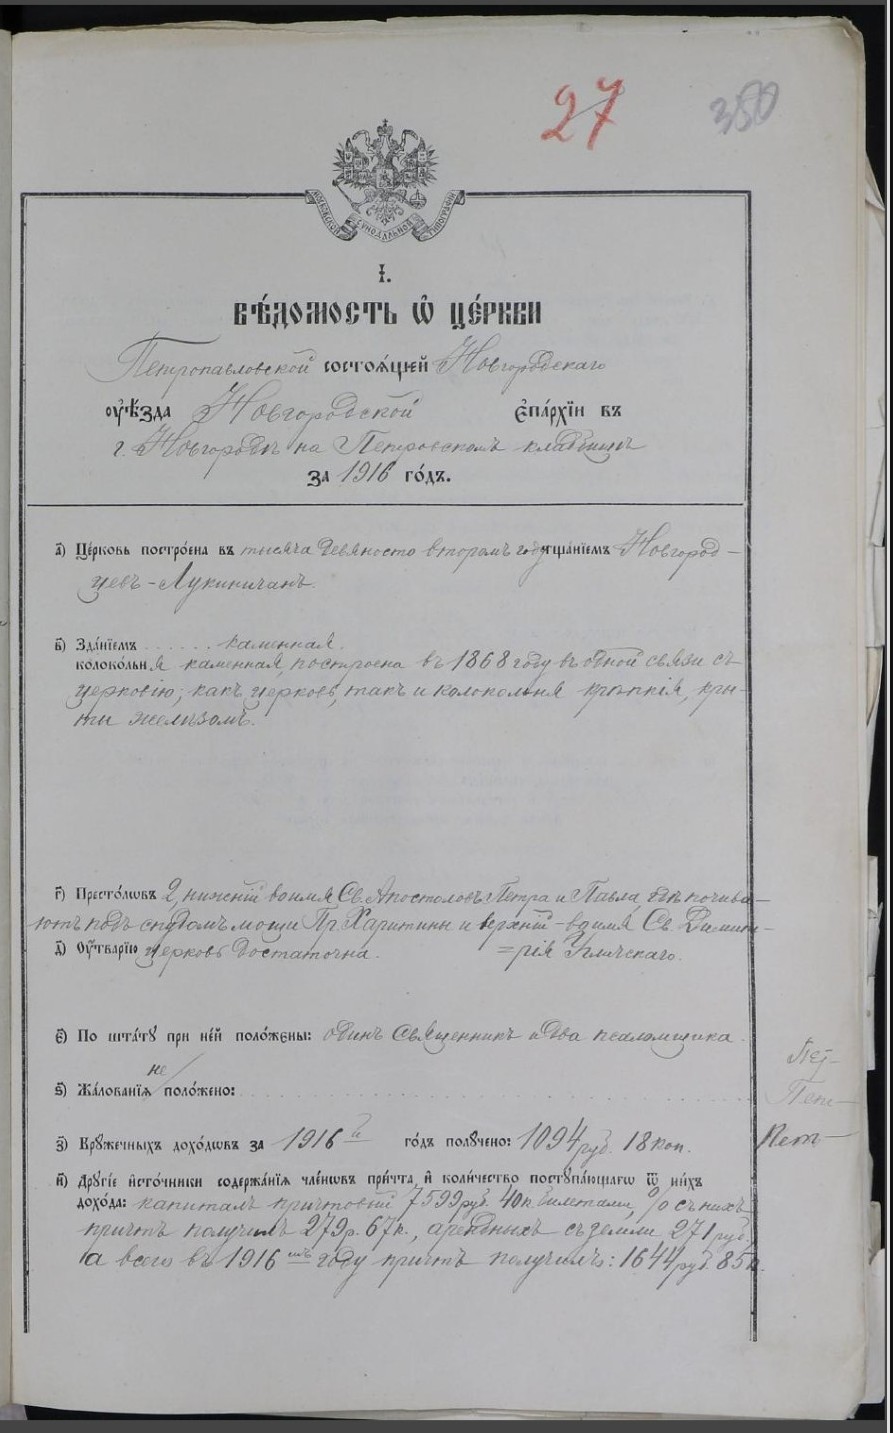 27 350
МОСКОВСКОЙ СѴНОДАЛЬНОЙ ТИПОГРАФІИ
І.
ВѢ́ДОМОСТЬ Ѡ҆ ЦЕ́РКВИ
Петропавловской состоѧ́щей Новгородскаго
ᲂу҆ѣ́зда Новгородской є҆па́рхїи въ
г. Новгородѣ на Петровскомъ кладбищѣ
за 1916 го́дъ.
а҃) Це́рковь постро́ена въ тысяча девяносто второмъ году тща́нїемъ Новгород-
цевъ-Лукиничанъ.
в҃) Зда́нїемъ ...... каменная.
колоко́льнѧ каменная, построена въ 1868 году въ одной связи съ
церковію; какъ церковь, такъ и колокольня крѣпкія, кры-
ты желѣзомъ.
г҃) Престо́лѡвъ 2, нижній во имя Св. Апостоловъ Петра и Павла, гдѣ почива-
ютъ подъ спудомъ мощи Пр. Харитины и верхній - во имя Св. Димит-
д҃) Оу҆́тварїю церковь достаточна. =рія Угличскаго.
є҃) По шта́тꙋ при не́й поло́жены: одинъ Священникъ и два псаломщика.
Пет-
не
ѕ҃) Жа́лованїѧ поло́жено: ........
Пет-
з҃) Крꙋ́жечныхъ дохо́дѡвъ за 1916й го́дъ полꙋ́чено: 1094 руб. 18 коп.
Пет-
и҃) Дрꙋгі́е и҆сто́чники содержа́нїѧ чле́нѡвъ при́чта, и҆ коли́чество постꙋпа́ющагѡ ѿ ни́хъ
дохо́да: капиталъ причтовый 7599 руб. 40 к. билетами, % съ нихъ
причтъ получилъ 279 р. 67 к., арендныхъ съ земли 271 руб.,
а всего въ 1916мъ году причтъ получилъ: 1644 руб. 85 к.